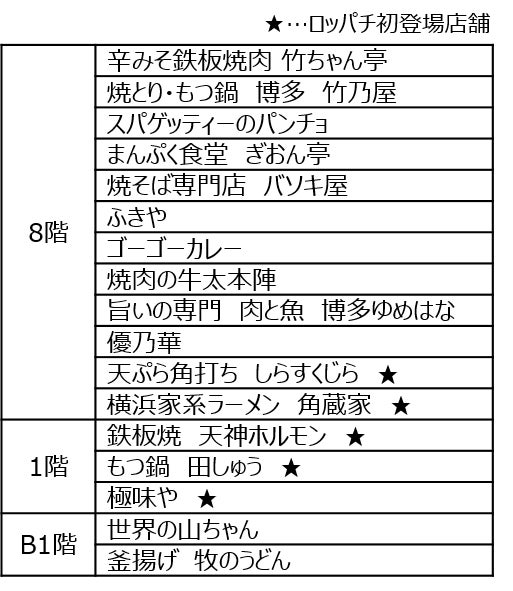 ★…ロッパチ初登場店舗
8階
辛みそ鉄板焼肉 竹ちゃん亭
焼とり・もつ鍋　博多　竹乃屋
スパゲッティーのパンチョ
まんぷく食堂　ぎおん亭
焼そば専門店　バソキ屋
ふきや
ゴーゴーカレー
焼肉の牛太本陣
旨いの専門　肉と魚　博多ゆめはな
優乃華
天ぷら角打ち　しらすくじら　★
横浜家系ラーメン　角蔵家　★
1階
鉄板焼　天神ホルモン　★
もつ鍋　田しゅう　★
極味や　★
B1階
世界の山ちゃん
釜揚げ　牧のうどん